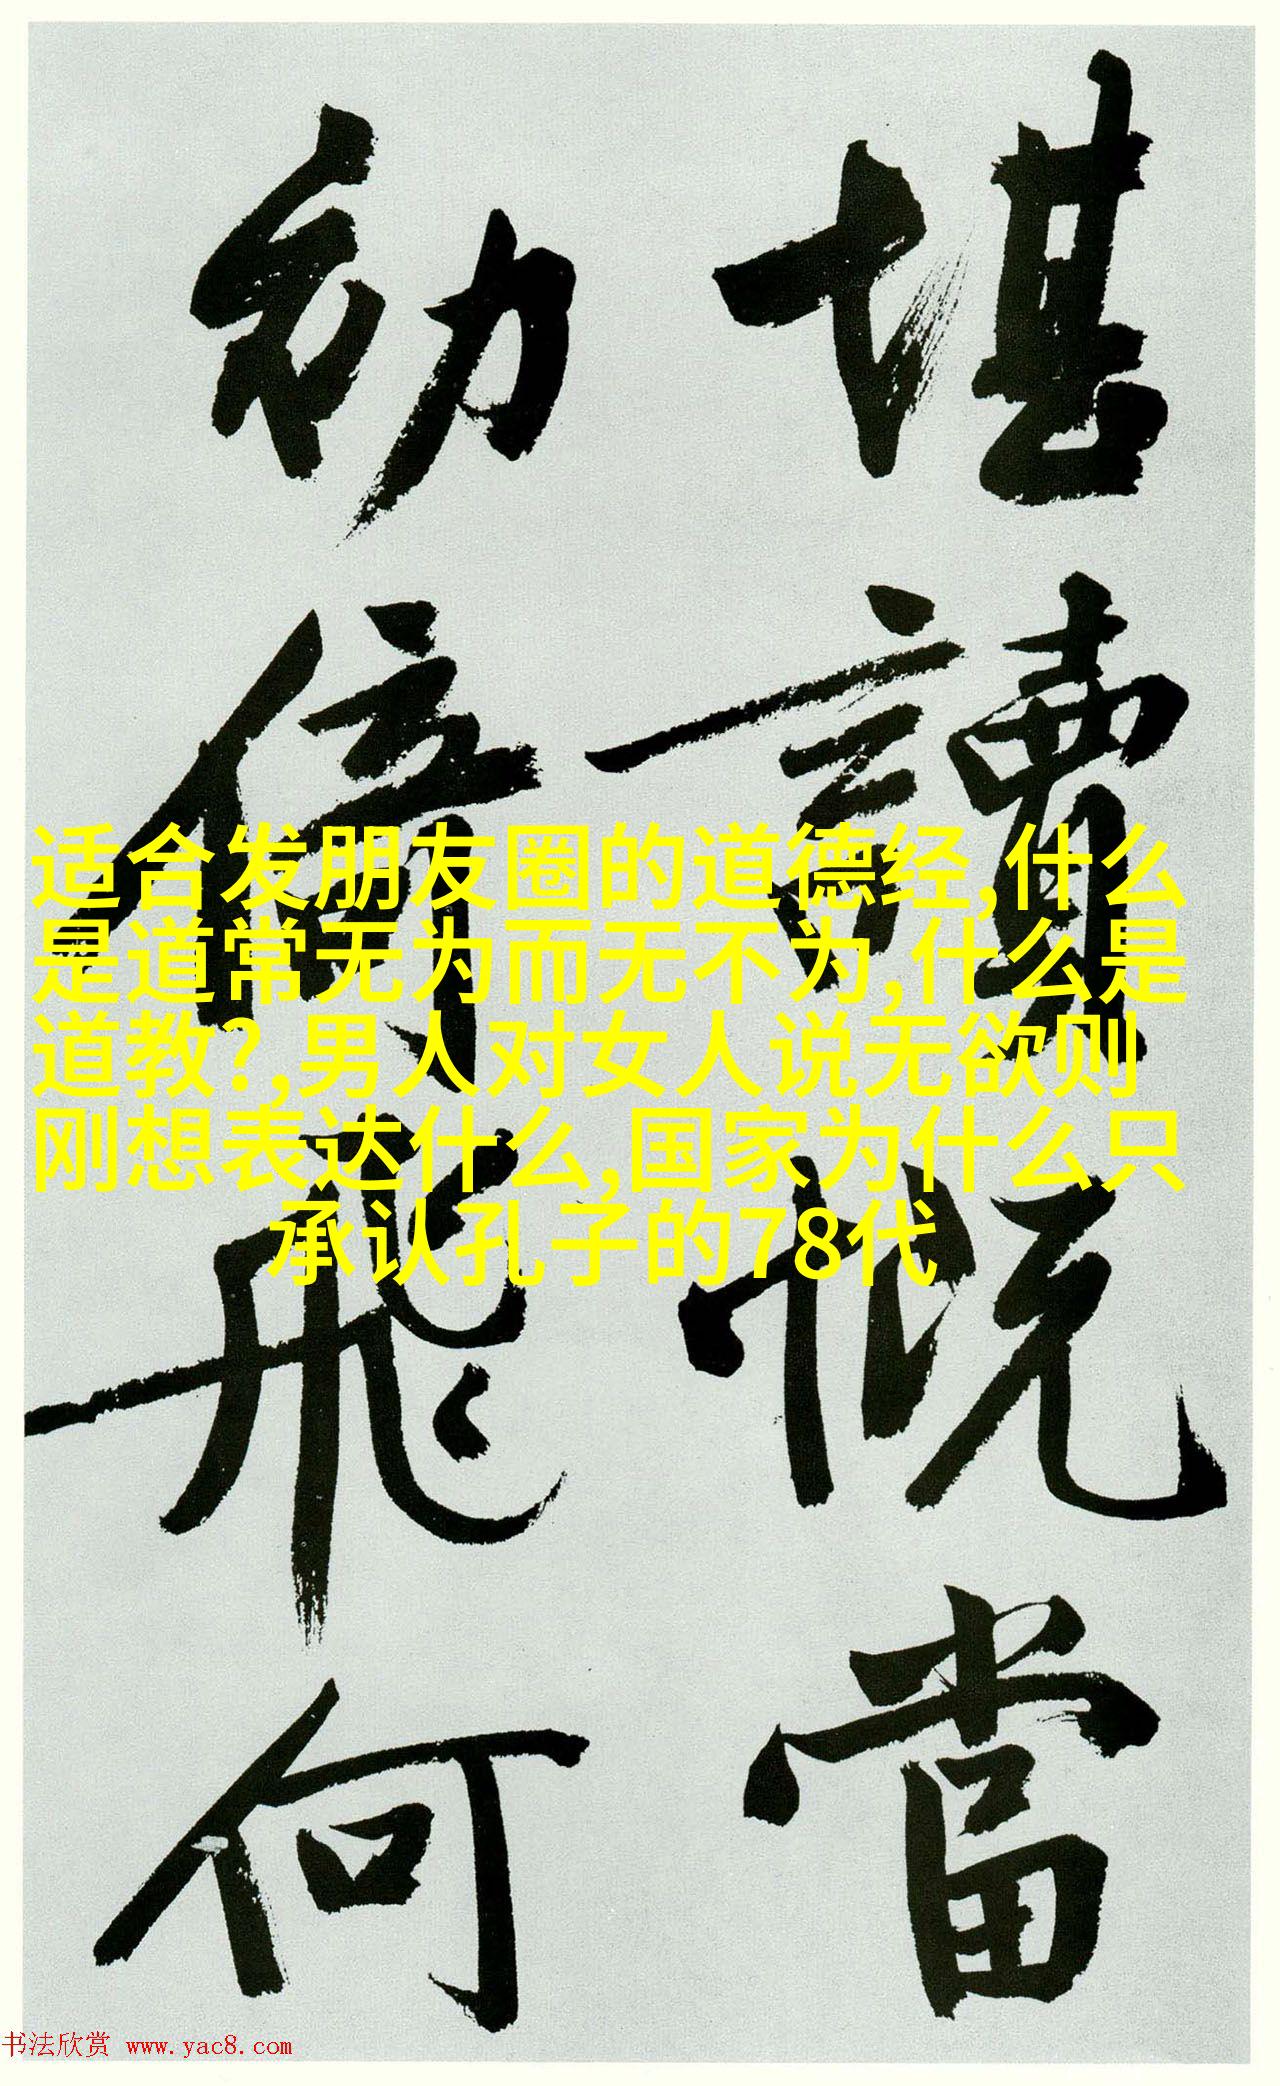 堪讀慨當
幼倚飛何
适合发朋友圈的道德经,什么
是道常无为而无不为,什么是
道教?,男人对女人说无欲则
刚想表达什么,国家为什么只
承认孔子的78代
书法欣赏 www.yac8.com